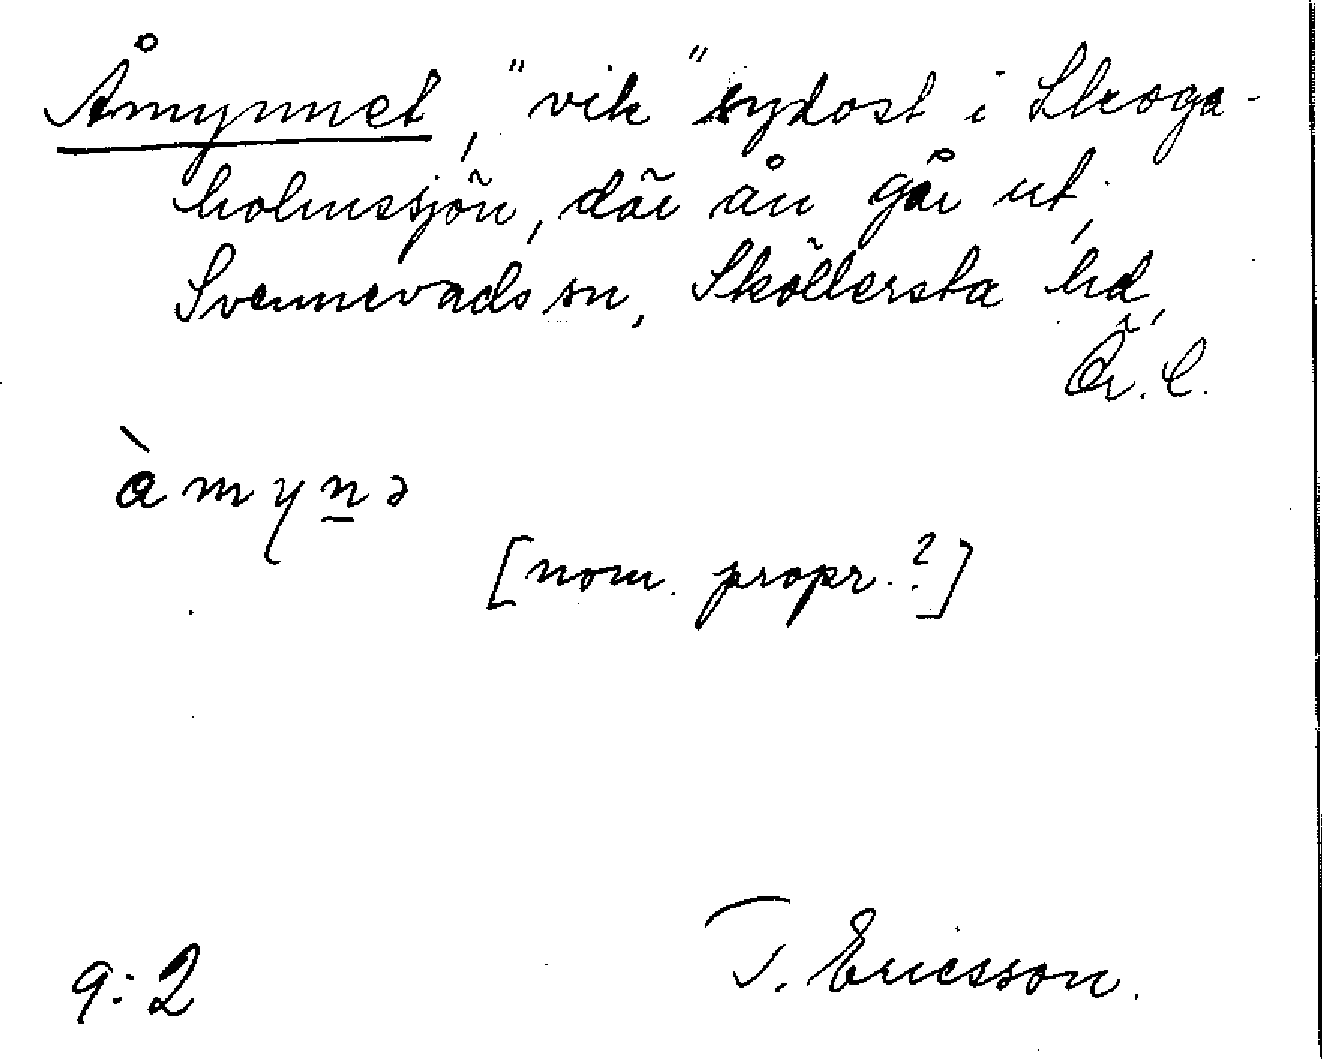 Åmynnet, "vik" sydost i Skoga-
holmssjön, där ån går ut,
Svennevads sn, Sköllersta hd,
Ör. l.
àmyn̲ə
[nom. propr.?]
9:2 T. Ericsson.